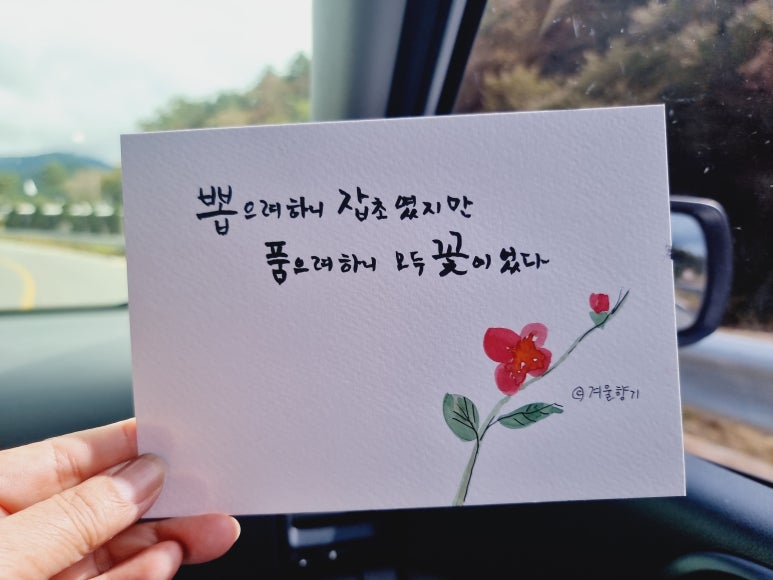 뽑으려 하니 잡초였지만
품으려 하니 모두 꽃이었다
ⓒ겨울향기